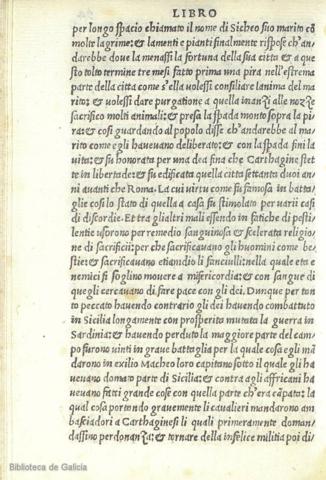 LIBRO
per longo spacio chiamato il nome di Sicheo suo marito cõ
molte lagrime: & lamenti e pianti finalmente rispose ch'an-
darebbe dove la menassi la fortuna della sua citta e a que
sto tolto termine tre mesi fatto prima una pira nell'estrema
parte della citta come s'ella volessi consiliare lanima del ma
rito: & volessi dare purgatione a quella inanzi alle nozze
sacrifico molti animali: & presa la spada monto sopra la pi-
ra: & cosi guardando al popolo disse ch'andarebbe al ma-
rito come egli havevano deliberato: & con la spada fini la
vita: & fu honorata per una dea fina che Carthagine stet
te in liberta de: & fu edificata quella citta settanta duoi an
ni avanti che Roma. La cui virtu come fu famosa in batta-
glie cosi lo stato di quella a casa fu stimolato per varii casi
di discordie. Et tra gli altri mali essendo in fatiche di pesti-
lentie usorono per remedio sanguinosa & scelerata religio-
ne di sacrificii: per che sacrificavano gli huomini come be-
stie: & sacrificavano etiamdio li fanciulli: nella quale eta e
nemici si soglino movere a misericordia: & con sangue di
quegli cercavano di fare pace con gli dei. Dunque per ton
to peccato havendo contrario gli dei havendo combattuto
in Sicilia longamente con prosperita mutata la guerra in
Sardinia: & havendo perduto la maggiore parte del cam-
po furono vinti in grave battaglia per la quale cosa egli mã
darono in exilio Macheo loro capitano sotto il quale gli ha
vevano domato parte di Sicilia: & contra agli affricani ha
vevano fatti grande cose con quella parte ch'era cãpata: la
qual cosa portendo gravemente li cavalieri mandarono am
basciadori a Carthaginesi li quali primeramente doman-
dassino perdonanza: & tornare della infelice militia poi di/
Biblioteca de Galicia